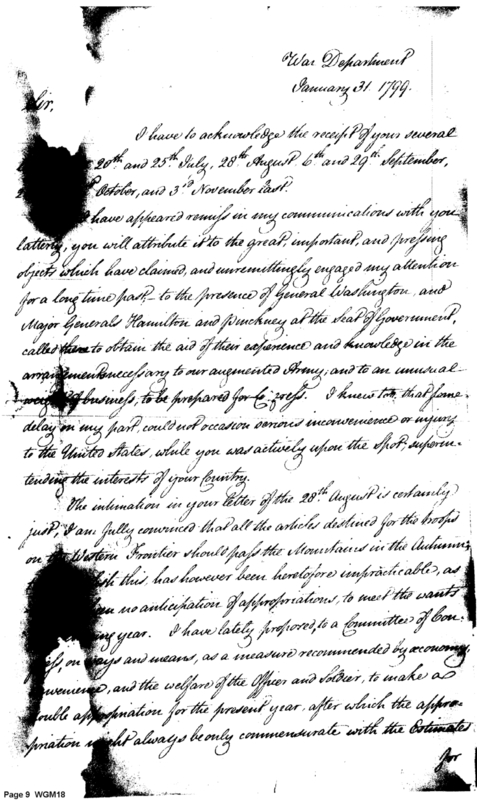 War Department
January 31 1799.
Sir,
I have to acknowledge the receipt of your several
20th and 25th July, 28th August 6th and 29th September,
October, and 3rd November last.
have appeared remiss in my communications with you
latterly, you will attribute it to the great, important, and pressing
objects which have claimed, and unremittingly engaged my attention
for a long time past, to the presence of General Washington, and
Major Generals Hamilton and Pinckney at the Seat of Government,
called there to obtain the aid of their experience and knowledge in the
arrangements necessary to our augmented Army, and to an unusual
of business, to be prepared for Congress. I knew too, that some
delay on my part, could not occasion serious inconvenience or injury
to the United States, while you was actively upon the Spot, superin-
tending the interests of your Country.
The intimation in your letter of the 28th August is certainly
just, I am fully convinced that all the articles destined for the troops
on the Western Frontier should pass the Mountains in the Autumn,
this, has however been heretofore impracticable, as
no anticipation of appropriations, to meet the wants
year. I have lately proposed, to a Committee of Con-
gress, on ways and means, as a measure recommended by œconomy,
convenience, and the welfare of the Officer and Soldier, to make a
double appropriation for the present year, after which the appro-
priation might always be only commensurate with the Estimates
for
Page 9 WGM18